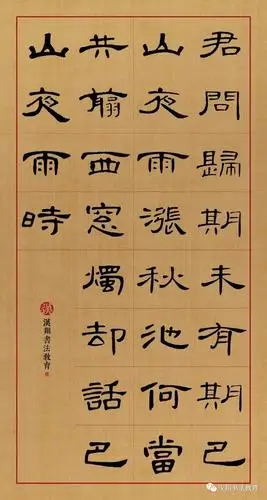 君問歸期未有期巴
山夜雨漲秋池何當
共翦西窗燭却話巴
山夜雨時
漢翔書法教育
汉翔书法教育